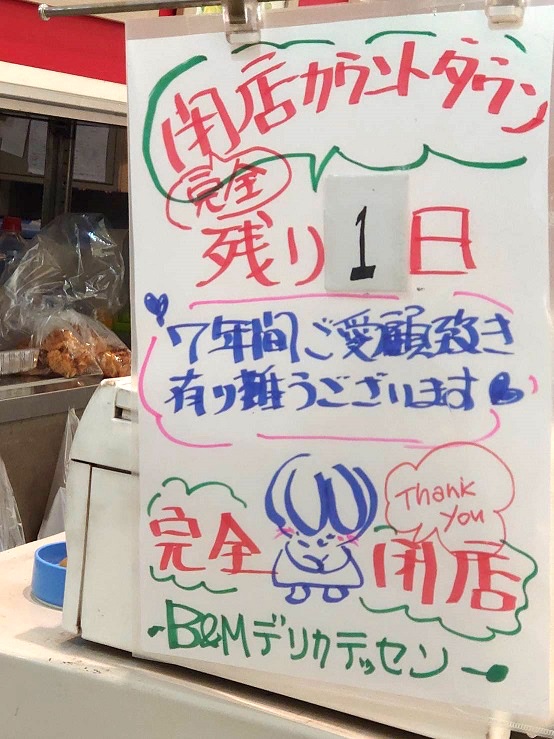 閉店カウントダウン
完全
残り1日
7年間ご愛顧致き
有り難うございます
Thank
You
完全 閉店
B&Mデリカテッセン